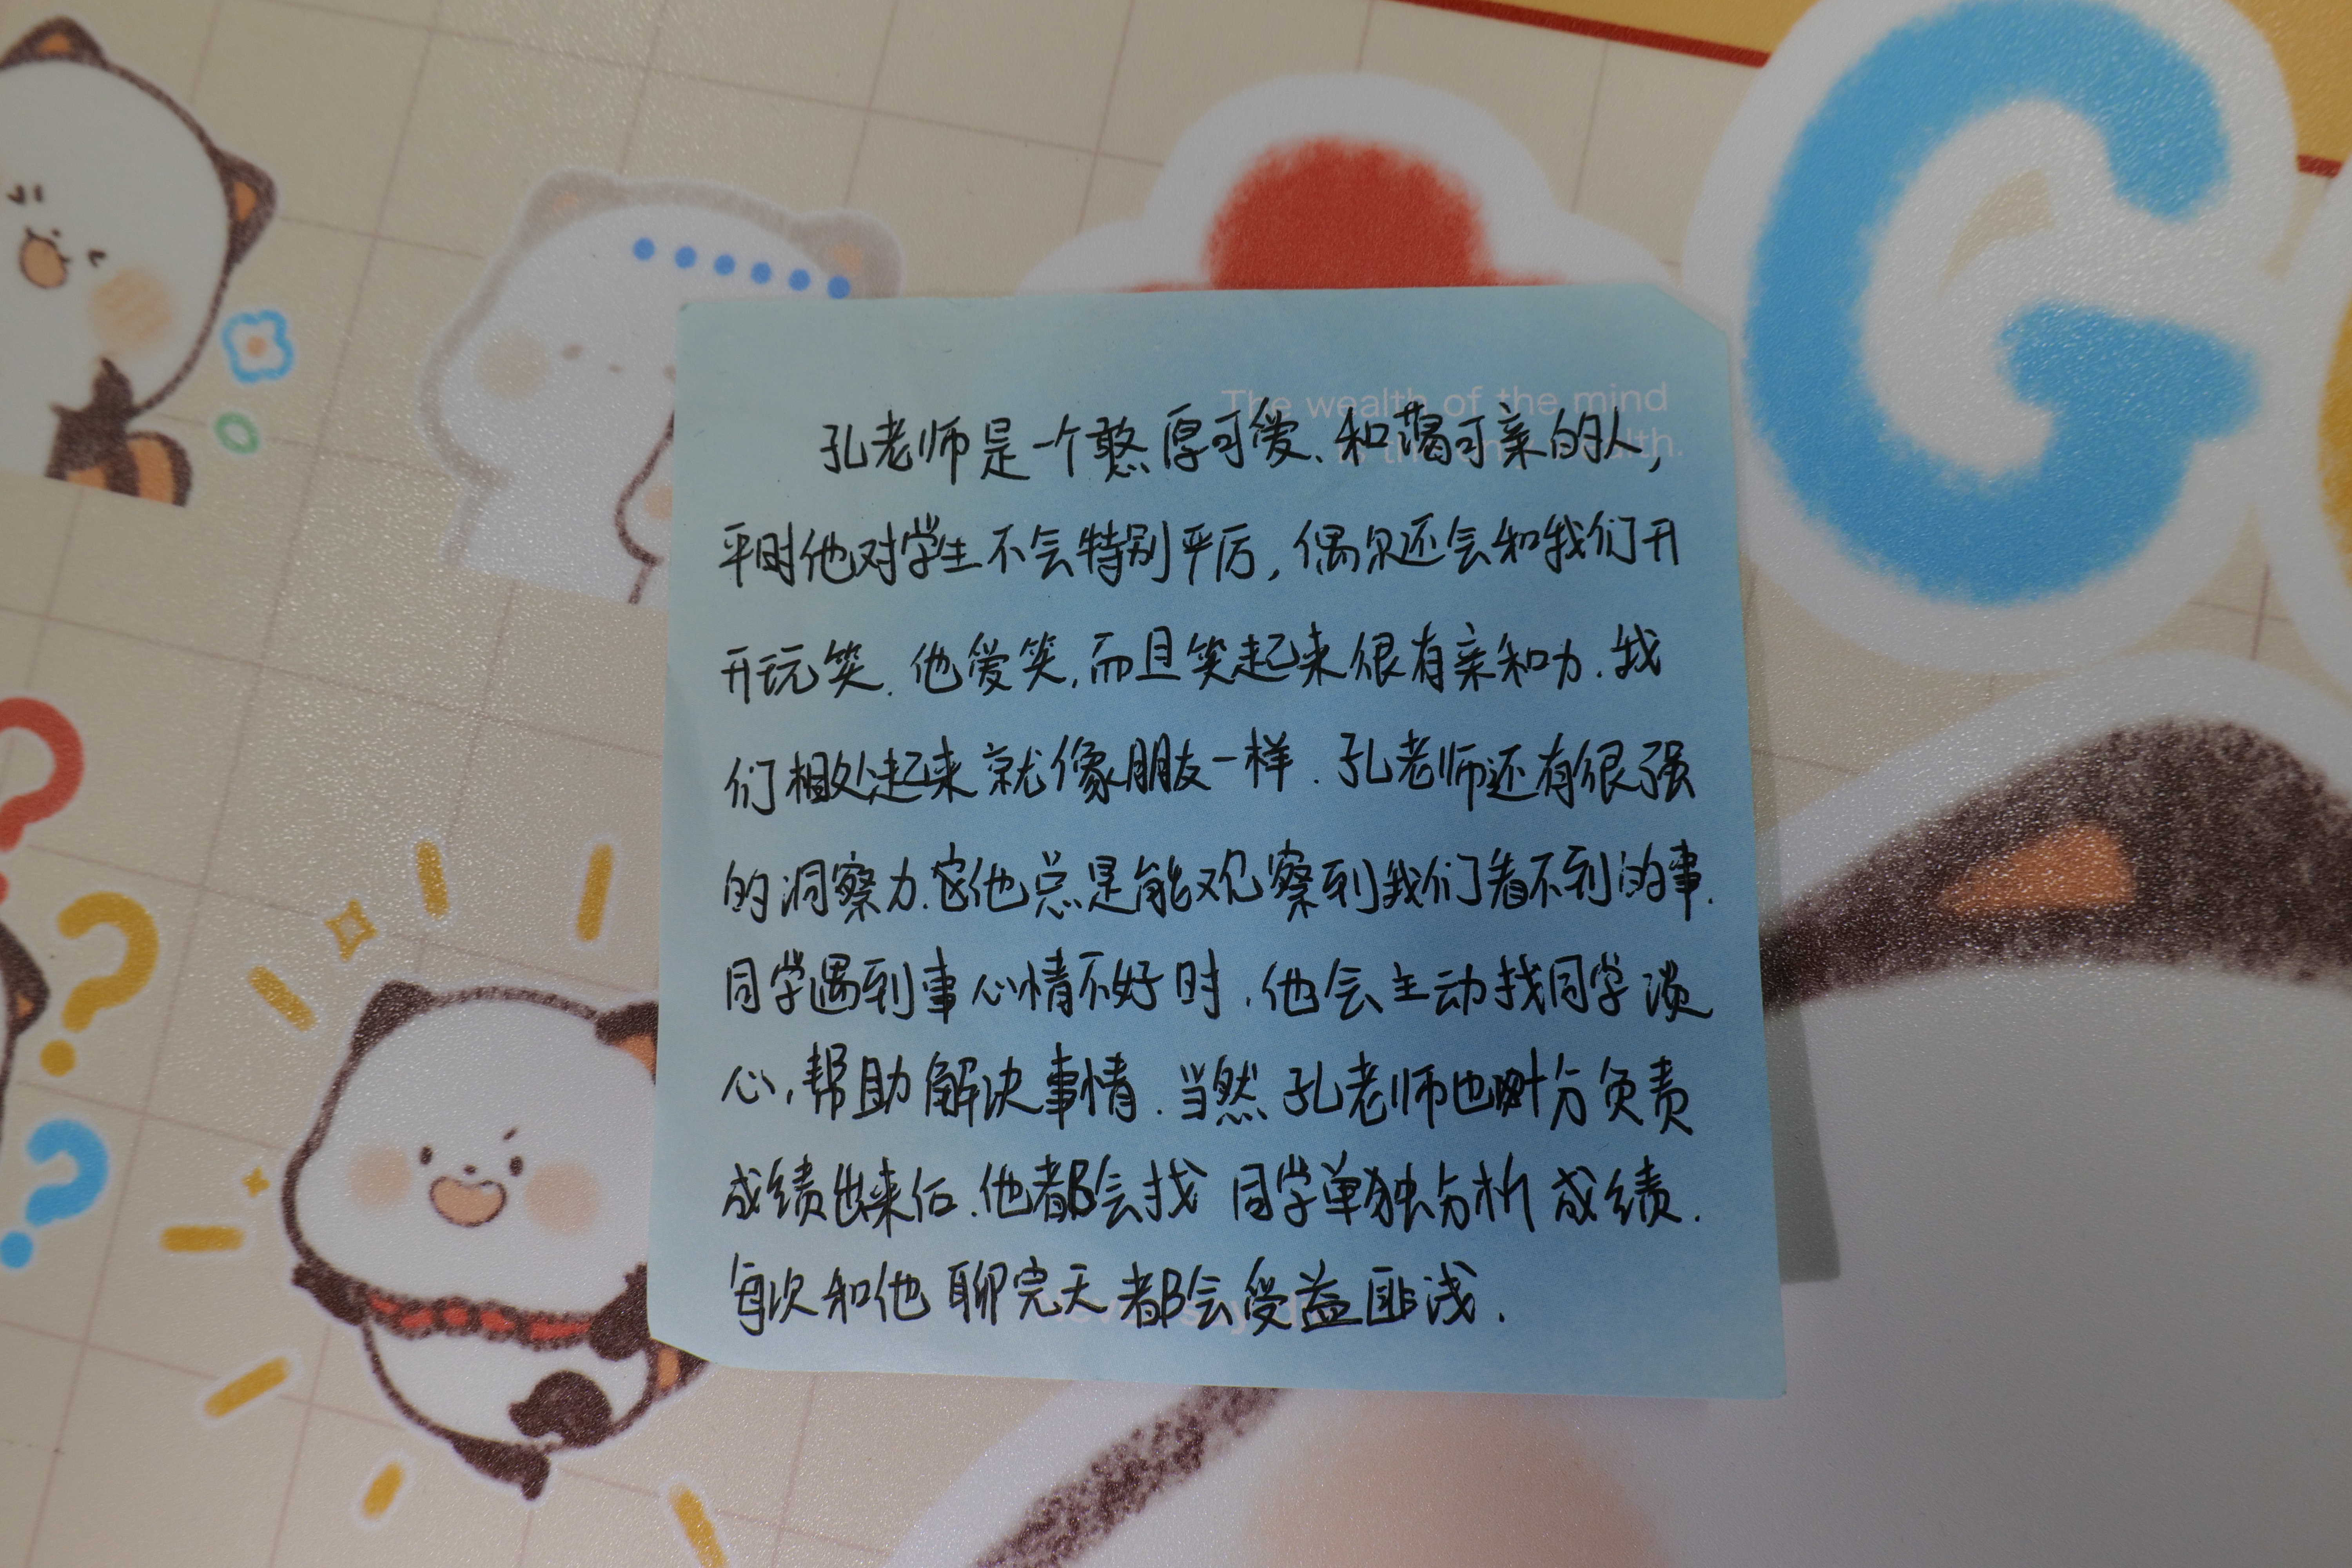 The wealth of the mind
孔老师是一个憨厚可爱、和蔼可亲的人,
平时他对学生不会特别严厉,偶尔还会和我们开
开玩笑.他爱笑,而且笑起来很有亲和力.我
们相处起来就像朋友一样.孔老师还有很强
的洞察力.他总是能观察到我们看不到的事.
同学遇到事心情不好时.他会主动找同学谈
心,帮助解决事情.当然孔老师也十分负责
成绩出来后.他都会找同学单独分析成绩.
每次和他聊完天都会受益匪浅.
G